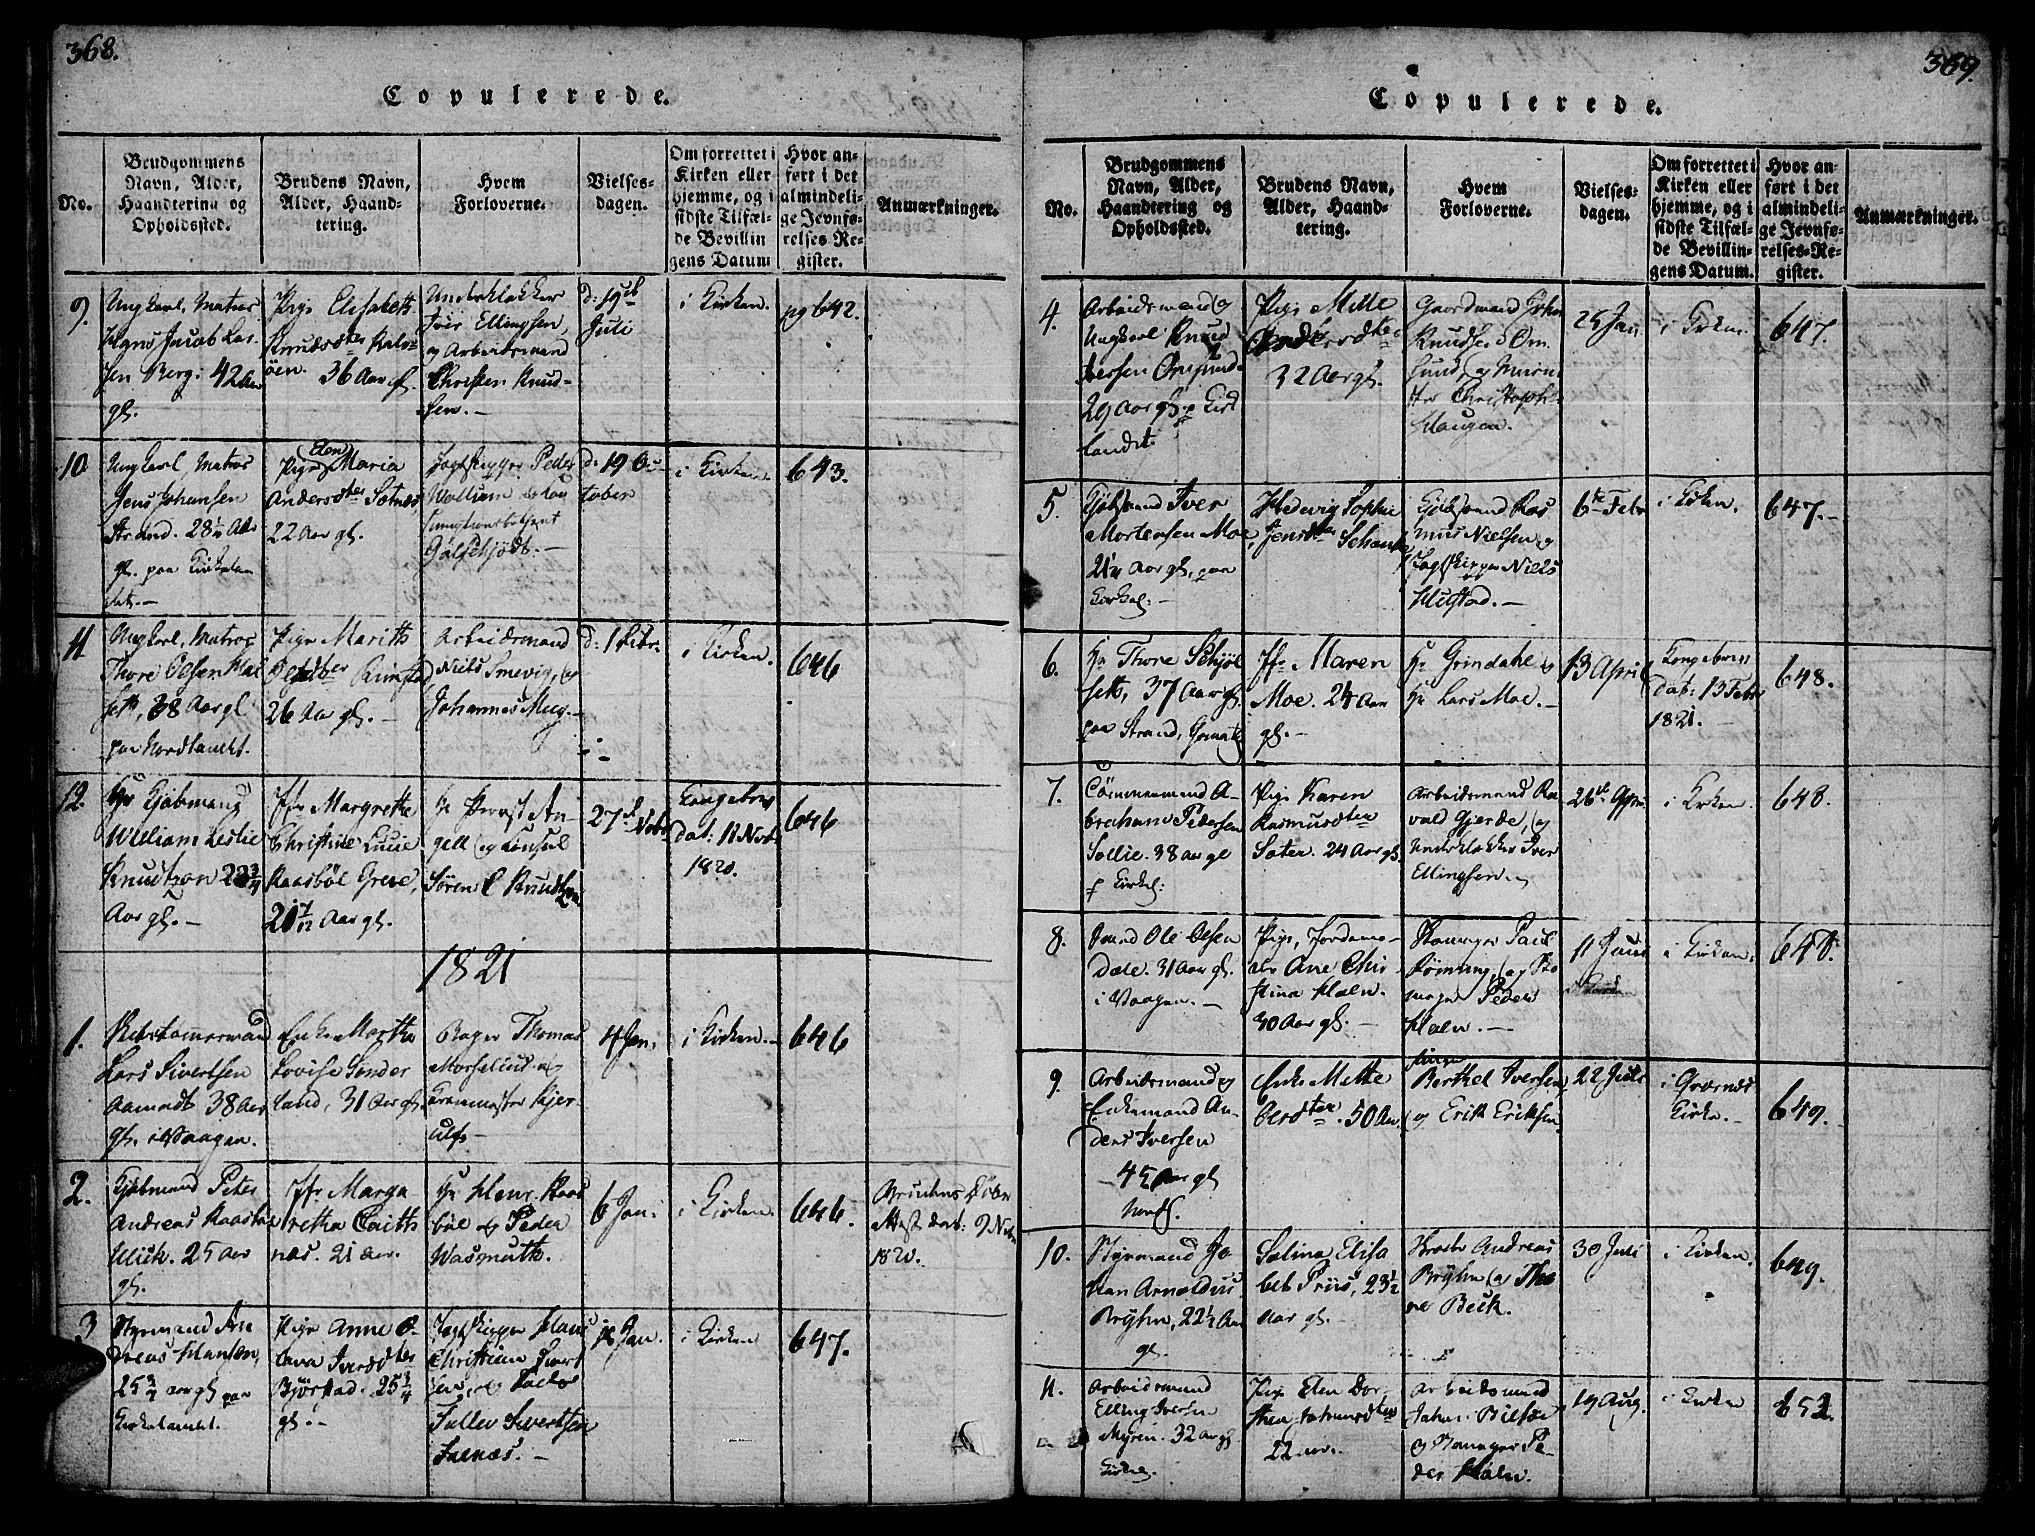 368.
Copulerede.
No.
Brudgommens
Navn, Alder,
Haandtering og
Opholdssted.
Brudens Navn,
Alder, Haand-
tering.
Hvem
Forloverne.
Vielses-
dagen.
Om forrettet i
Kirken eller
hjemme, og i
sidste Tilfæl-
de Bevillin
gens Datum
Hvor an-
ført i det
almindeli-
ge Jevnfø-
relses Re-
gister.
Anmærkninger.
9.
Ungkarl, Matros
Hans Jacob Lar-
sen Berg. 42 Aar
gl.
Pige Elisabeth
Knudsdter Kalv-
øen. 36 Aar gl.
Underklokker
Iver Ellingsen,
og Arbeidsmand
Christen Knud-
sen.
d: 19de
Juli
i Kirken.
pg 642.
10.
Ungkarl, Matros
Jens Johansen
Strand. 28½ Aar
gl. paa Kirkelan
det.
Pige Elen Maria
Andersdter Sætnæs
22 Aar gl.
Jagtskipper Peder
Wollum
d: 19 Oc-
tober
i Kirken.
643.
11
Ungkarl, Matros
Thore Olsen
38 Aar gl
paa Nordlandet.
Pige Marith
Olsdter Rimstad
26 Aar gl.
Arbeidsmand
Niels Smevig, og
Johannes Myg.
i Kirken.
646
12.
Hr Kjøbmand
William Leslie
Knudtzon 22¾
Aar gl.
Jfr Margrethe
Christine Lucie
Kaasbøl Greve,
20 7/12 Aar gl.
Hr Provst An-
gell og Consul
Søren C Knudtzon
27de Nobr
Kongebrev
dat: 11 Nobr
1820.
646
1821
1.
Lars Sivertsen
Aamodt 38 Aar
gl. i Vaagen.
Enke Martha
Lovise Sønder
land, 31 Aar gl.
Bager Thomas
og
Kjer-
ulf
4 Jan:
i Kirken.
646
2.
Kjøbmand Peter
Andreas Kaasbøl
25 Aar
gl.
Jfr Marga
retha Caith
nes. 21 Aar.
Hr Henr. Kaas
bøl og Peder
Wasmuth.
6 Jan:
i Kirken.
646.
Brudens Døbe
Attest dat: 9 Nobr
1820.
3
Styrmand An
dreas Hansen,
25¾ aar gl paa
Kirkelandet.
Pige Anne O-
lava Iversdter
Bjørstad. 25¾
gl.
Jagtskipper Hans
Christian Sivert
sen
Tollev Sivertsen
Jan.
i Kirken
647.
369.
Copulerede.
No.
Brudgommens
Navn, Alder,
Haandtering og
Opholdssted.
Brudens Navn,
Alder, Haand-
tering.
Hvem
Forloverne.
Vielses-
dagen.
Om forrettet i
Kirken eller
hjemme, og i
sidste Tilfæl-
de Bevillin-
gens Datum.
Hvor an-
ført i det
almindeli-
ge Jevnfø-
relses-Re-
gister.
Anmærkninger.
4.
Arbeidsmand og
Ungkarl Knud
Iversen Omsund
29 Aar gl. p Kirke
landet.
Pige Mille
Andersdter
32 Aar gl.
Gaardmand John
Knudsen Om
sund, og Muurme
ster Christoph
Haugen.
25 Jan
i Kirken.
647.
5.
Kjøbmand Iver
Mortensen Moe,
21¼ Aar gl, paa
Kirkel:
Hedevig Sophie
Jensdter Schanke
Kjøbmand Ras
mus Nielsen og
Jagtskipper Niels
Hustad.
6te Febr
i Kirken.
647.
6.
Hr Thore Schjøl
seth, 37 Aar gl.
paa Strand,
Jfr Maren
Moe. 24 Aar
gl.
Hr Grindahl og
Hr Lars Moe.
13 April
Kongebrev
dat: 13 Febr
1821.
648.
7.
Tømmermand A-
braham Pedersen
Sollie. 38 Aar gl
p Kirkel:
Pige Karen
Rasmusdter
Sæter. 24 Aar gl.
Arbeidsmand Ra
vald Gjerde, og
Underklokker Iver
Ellingsen.
26de April
i Kirken.
648.
8.
Svend Ole Olsen
Dale. 31 Aar gl.
i Vaagen.
Pige, Jordemo-
der Ane Chri-
stina Holm.
30 Aar gl.
Paul
Rømning, og
Peder
Holm.
11 Juni
i Kirken.
648.
9.
Arbeidsmand og
Enkemand An-
ders Iversen
45 Aar gl
Nordl.
Enke Mette
Olsdter. 50 Aar.
Berthel Iversen,
og Erik Eriksen
22 Juli
i Grasnæs
Kirke.
649.
10.
Styrmand Jo
han Arnoldus
Bryhn, 22½ Aar
gl.
Salina Elisa
beth Priis, 23½
Aar gl.
Andreas
Bryhn og Tho
re Beck.
30 Juli
i Kirken
649.
11.
Arbeidsmand
Elling Iversen
Myren. 32 Aar gl
Kirkel.
Pige Elen Dor-
thea Johansdter
22 aar.
Arbeidsmand
Johan
og Pe-
der Holm.
19 Aug.
i Kirken
652.